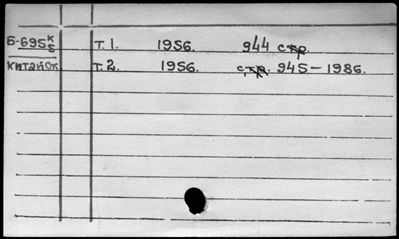 Б-695 К/Б т. 1. 1956. 944 стр.
китайск т. 2. 1956. стр. 945-1986.